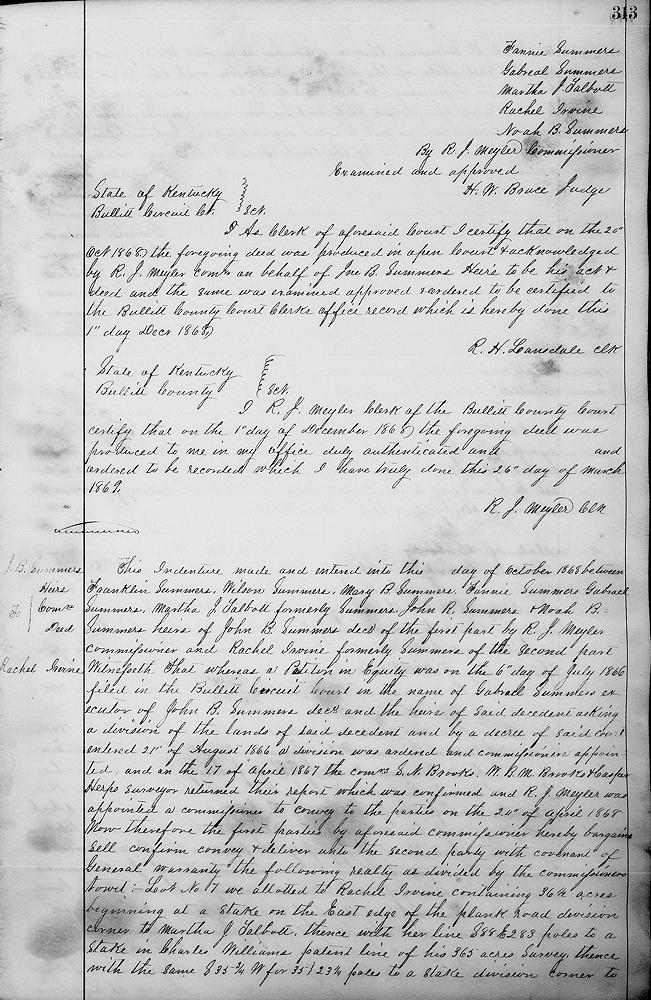 313
Fannie Summers
Gabreal Summers
Martha J Talbott
Rachel Irvine
Noah B. Summers
By R. J. Meyler Commissioner
Examined and approved
H. W. Bruce Judge
State of Kentucky
Bullitt Circuit Ct. } Sct.
I As Clerk of aforesaid Court I certify that on the 20"
Oct 1868 the foregoing deed was produced in open Court & acknowledged
by R. J. Meyler comr on behalf of Jno B. Summers Heirs to be his act &
deed and the same was examined approved & ordered to be certified to
the Bullitt County Court Clerks office record which is hereby done this
1" day Decr 1868
R. H. Lansdale clk
State of Kentucky
Bullitt County } Sct.
I R. J. Meyler Clerk of the Bullitt County Court
certify that on the 1" day of December 1868 the foregoing deed was
produced to me in my office duly authenticated and and
ordered to be recorded which I have truly done this 26" day of March
1869.
R. J. Meyler Clk
J. B. Summers
Heirs
To } Comr
Deed
Rachel Irvine
This Indenture made and entered into this day of October 1868 between
Franklin Summers, Wilson Summers, Mary B. Summers, Fannie Summers Gabrael
Summers, Martha J Talbott formerly Summers John R. Summers & Noah B=
Summers heirs of John B. Summers decd of the first part by R. J. Meyler
commissioner and Rachel Irvine formerly Summers of the second part
Witnesseth That whereas a Petition in Equity was on the 6" day of July 1866
filed in the Bullitt Circuit Court in the name of Gabrael Summers ex-
ecutor of John B. Summers decd and the heirs of said decedent asking
a division of the lands of said decedent and by a decree of said court
entered 21" of August 1866 a division was ordered and commissioners appoin
ted, and on the 17 of April 1867 the comrs S. N. Brooks, W. B. M. Brooks & Caspar
Herps surveyor returned their report which was confirmed and R. J. Meyler was
appointed a commissioner to convey to the parties on the 24" of April 1868
Now therefore the first parties by aforesaid commissioner hereby bargains
sell confirm convey & deliver unto the second party with covenant of
General warranty the following realty as divided by the commissioners
towit:- Lot No 7 we allotted to Rachel Irvine containing 36¼ acres
beginning at a stake on the East edge of the plank road division
corner to Martha J Talbott, thence with her line S88 E283 poles to a
stake in Charles Williams patent line of his 365 acres survey, thence
with the same S 35¼ W for 35) 23¼ poles to a stake division corner to